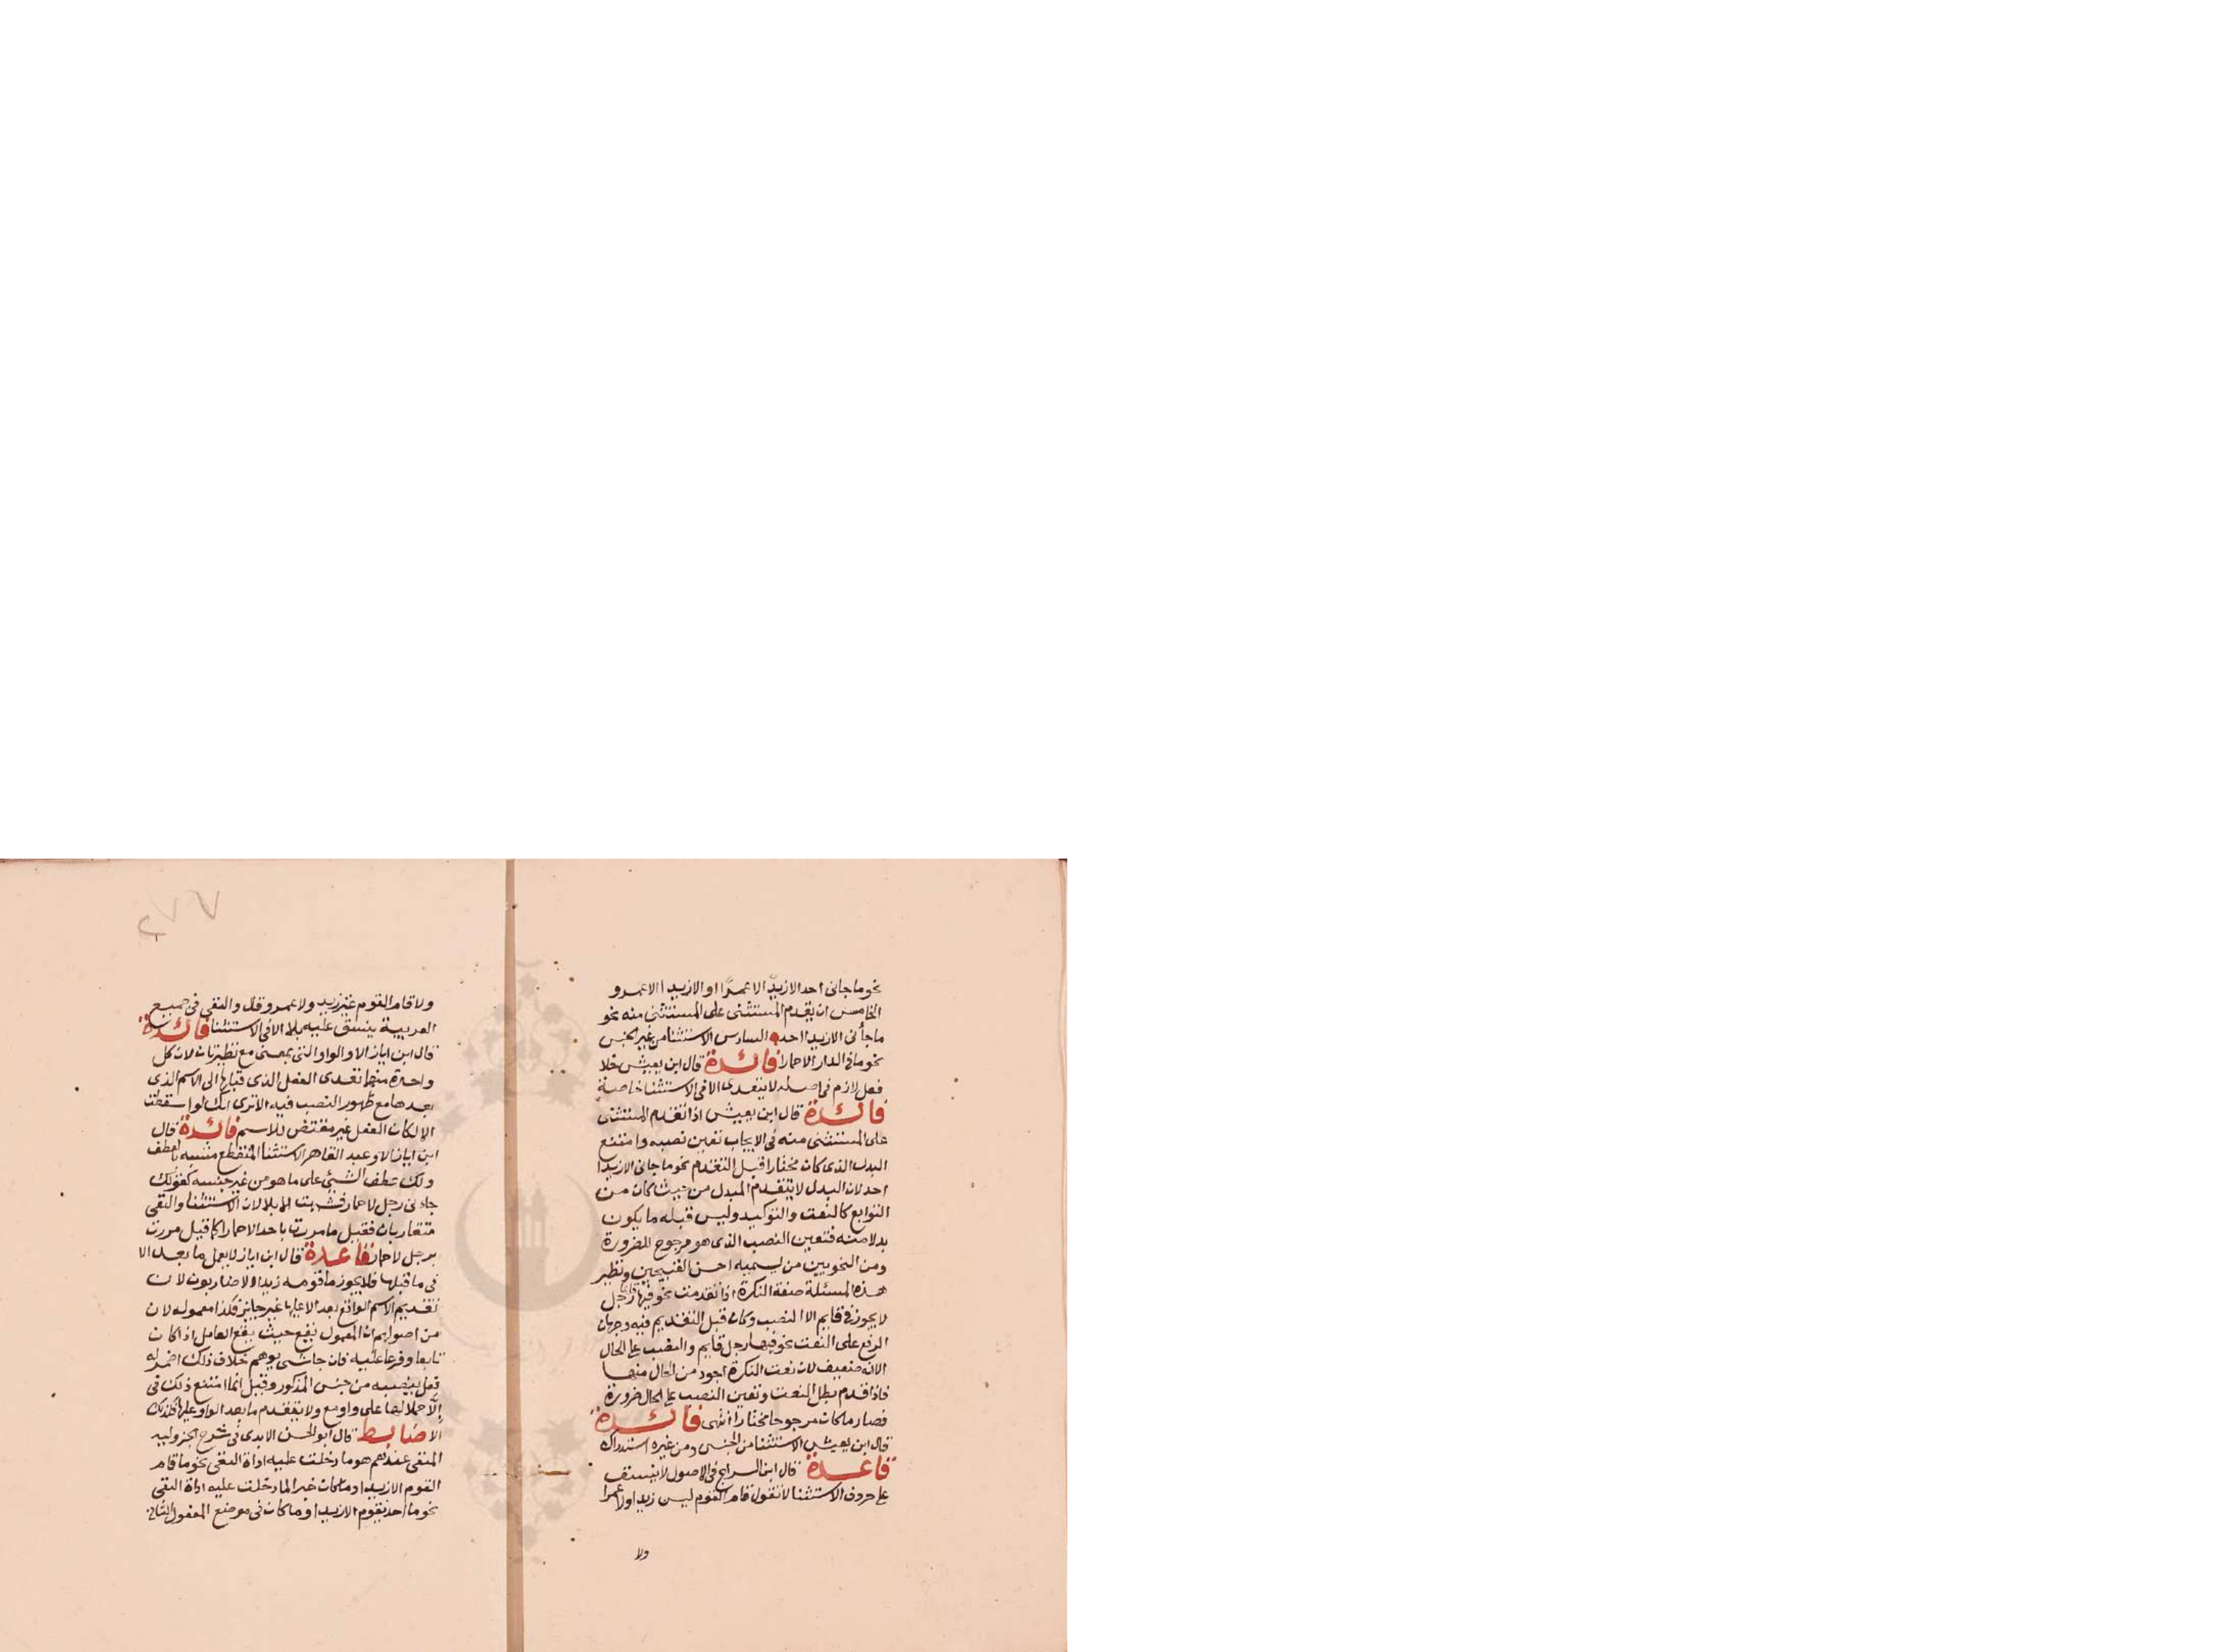 نحو ما جانى احد الا زيدٌ الا عمرًا او الا زيدا الا عمرو
الخامس ان يقدم المستثنى على المستثنى منه نحو
ما جأنى الا زيدا احد السادس الاستثنا من غير الجنس
نحو ما فى الدار الا حمارا فائدة قال ابن يعيش خلا
فعل لازم فى اصله لا يتعدى الا فى الاستثنا خاصة
فائدة قال ابن يعيش اذا تقدم المستثنى
على المستثنى منه فى الايجاب تعين نصبه وامتنع
البدل الذى كان مختارا قبل التقدم نحو ما جانى الا زيدا
احد لان البدل لا يتقدم المبدل من حيث كان من
التوابع كالنعت والتوكيد وليس قبله ما يكون
بدلا منه فتعين النصب الذى هو مرجوح للضرورة
ومن النحويين من يسميه احسن القبيحين ونظير
هذه المسئلة صفة النكرة اذا تقدمت نحو فيها قايما رجل
لا يجوز فى قايم الا النصب وكان قبل التقديم فيه وجهان
الرفع على النعت نحو فيها رجل قايم والنصب على الحال
الا انه ضعيف لان نعت النكرة اجود من الحال منها
فاذا قدم بطل النعت وتعين النصب على الحال ضرورة
فصار ما كان مرجوحا مختارا انتهى فائدة
قال ابن يعيش الاستثنا من الجنس ومن غيره استدراك
قاعدة قال ابن السراج فى الاصول لا ينسق
على حروف الاستثنا لا تقول قام القوم ليس زيدا ولا عمرا
ولا
٢٧٧
ولا قام القوم غير زيد ولا عمرو وقال والنفى فى جميع
العربية ينسق عليه بلا الا فى الاستثنا فائدة
قال ابن اياز الا والواو التى بمعنى مع نظيرتان لان كل
واحدة منهما تعدى الفعل الذى قبلها الى الاسم الذى
بعدها مع ظهور النصب فيه الا ترى انك لو اسقطت
الا لكان الفعل غير مقتض للاسم فائدة قال
ابن اياز الاوعبد القاهر الاستثنا المنقطع مشبه بالعطف
ولك عطف الشئ على ما هو من غير جنسه كقولك
جاءنى رجل لا حمار فشبهت الا بلا لان الاستثنا والنفى
متقاربان فقيل ما مررت باحد الا حمارا كما قيل مررت
برجل لا حمار قاعدة قال ابن اياز لا يعمل ما بعد الا
فى ما قبلها فلا يجوز ما قومه زيدا الا ضاربون لان
تقديم الاسم الواقع بعد الا عليها غير جايز فكذا معموله لان
من اصولهم ان المعمول يقع حيث يقع العامل اذا كان
تابعا وفرعا عليه فان جا شى يوهم خلاف ذلك اضمر له
فعل ينصبه من جنس المذكور وقيل انما امتنع ذلك فى
الّا حملا لها على واو مع ولا يتقدم ما بعد الواو عليها فكذلك
الا ضابط قال ابو الحسن الابدى فى شرح الجزولية
المنفى عندهم هو ما دخلت عليه اداة النفى نحو ما قام
القوم الا زيدا وما كان خبرا لما دخلت عليه اداة النفى
نحو ما احد يقوم الا زيدا وما كان فى موضع المفعول الثانى